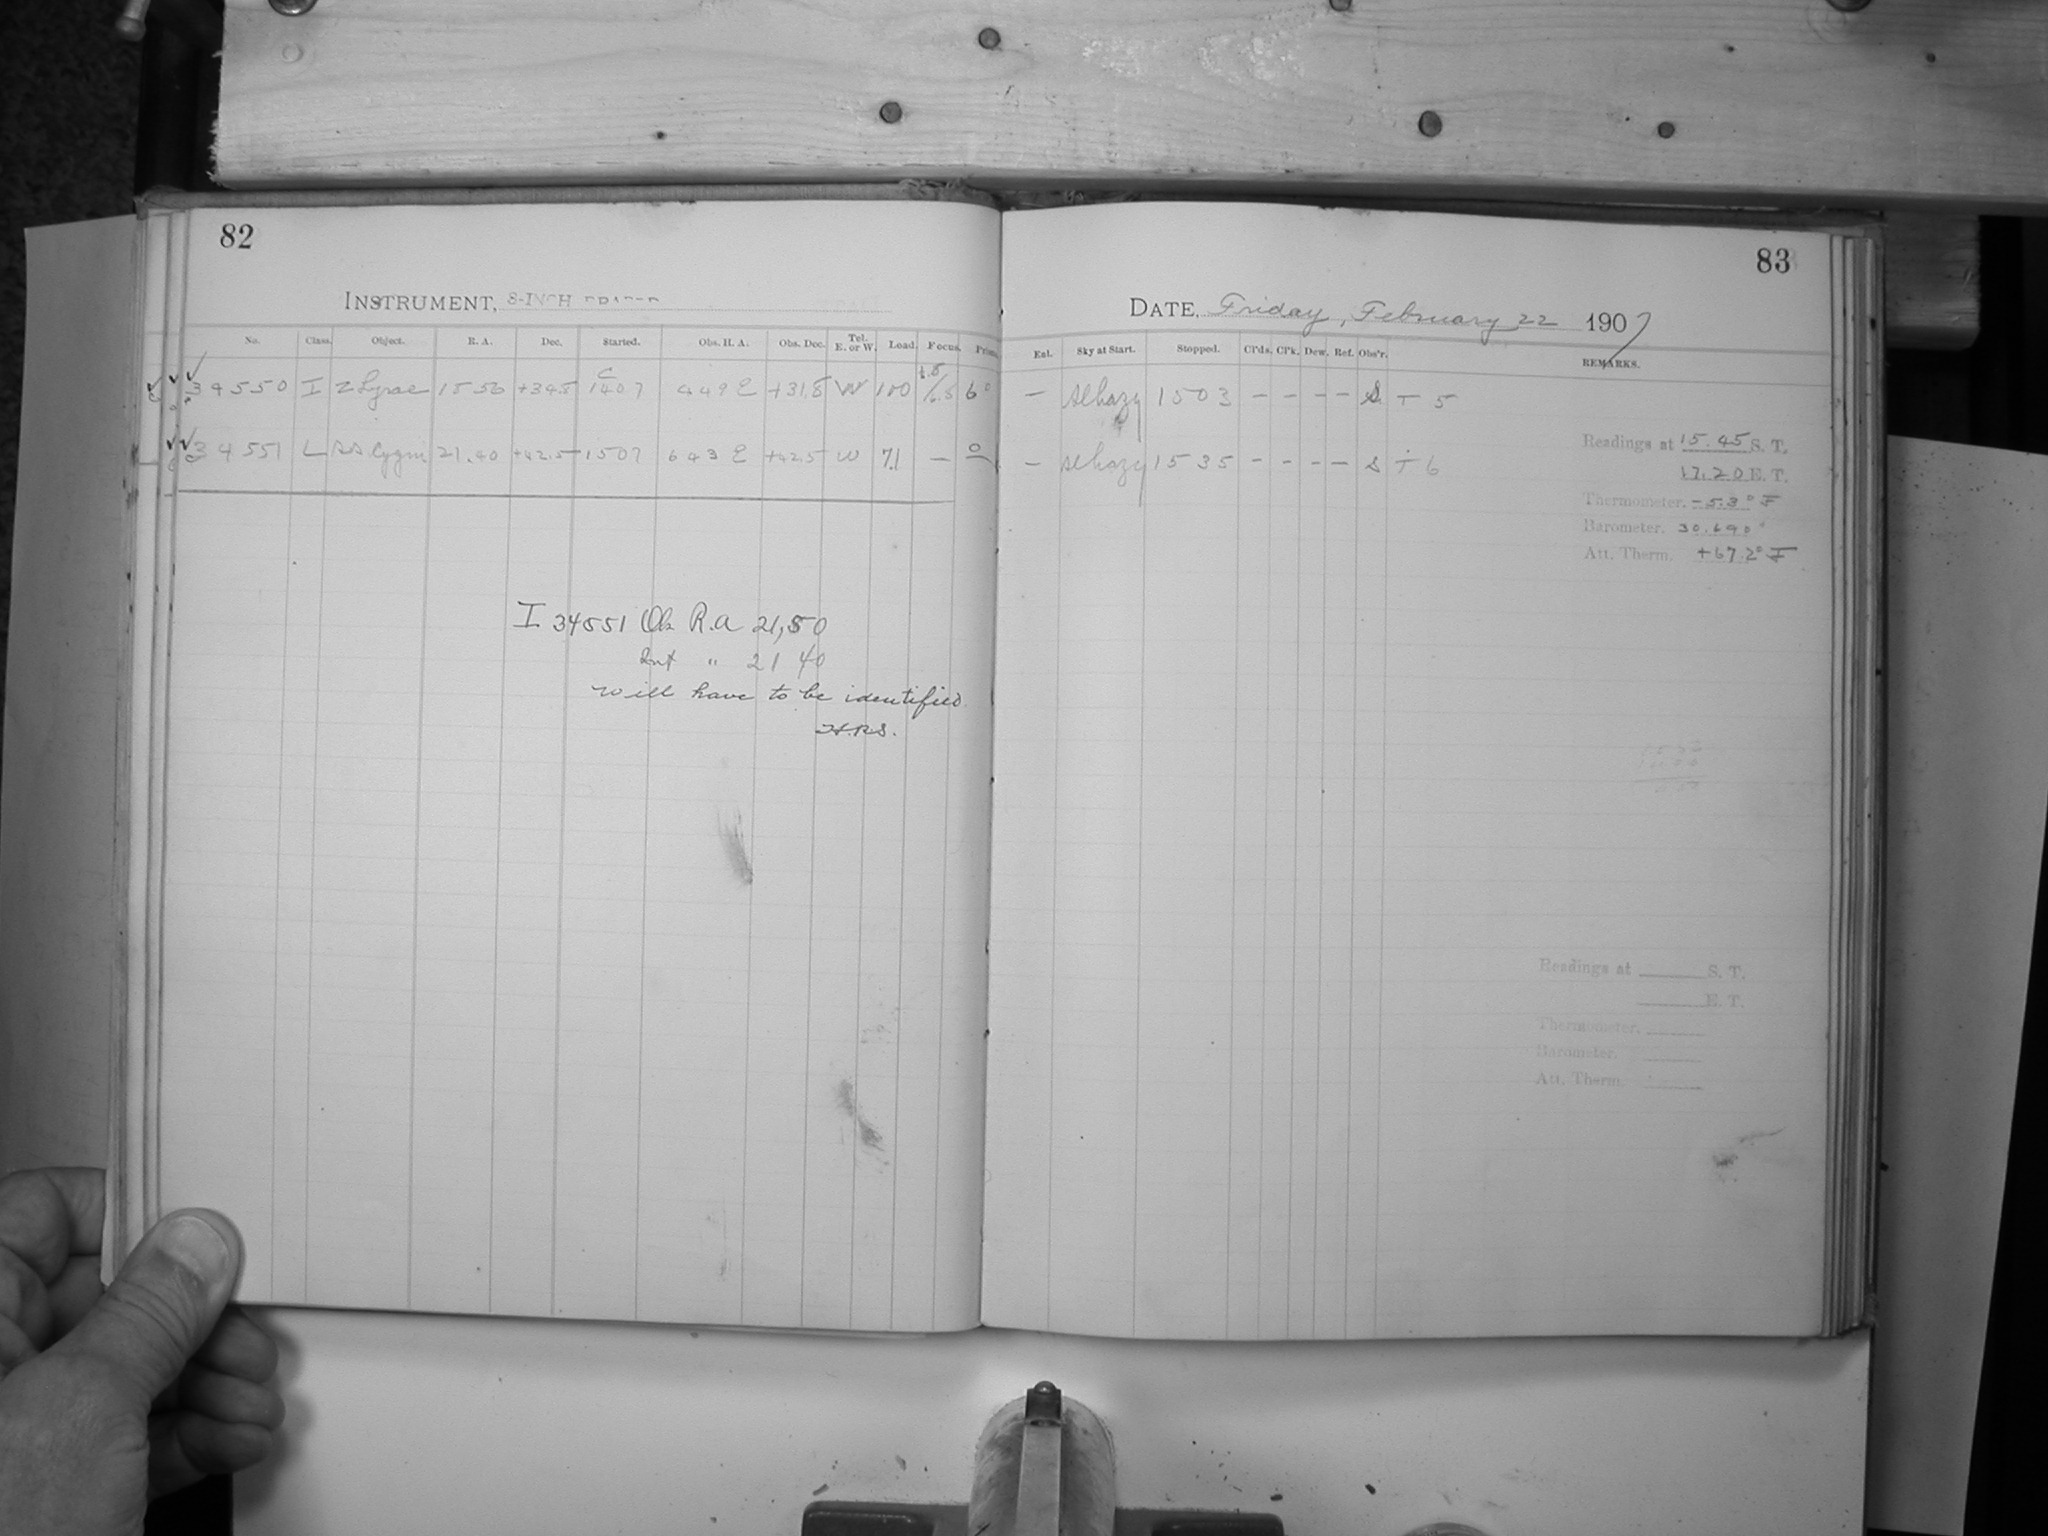 82
INSTRUMENT, 8-INCH DRAPER
No. Class. Object. R. A. Dec. Started. Obs. H. A. Obs. Dec. Tel. E. or W. Lead. Focus. Prism.
34550 I Z Lyrae 1556 +34.5 1407 449 E +31.8 W 100 6°
34551 L SS Cygni 21.40 +42.5 1507 643 E +42.5 W 71 — 0
I 34551 Ob R.A 21,50
Int " 21 40
will have to be identified.
H.R.S.
83
DATE, Friday, February 22 1907
Eal. Sky at Start. Stopped. Cl'ds. Cl'k. Dew. Ref. Obs'r. REMARKS.
— sl hazy 1503 – – – – S. T 5
— sl hazy 1535 – – – – S T 6
Readings at 15.45 S. T.
17.20 E. T.
Thermometer. -5.3° F
Barometer. 30.690
Att. Therm. +67.2° F
Readings at S. T.
E. T.
Thermometer.
Barometer.
Att. Therm.